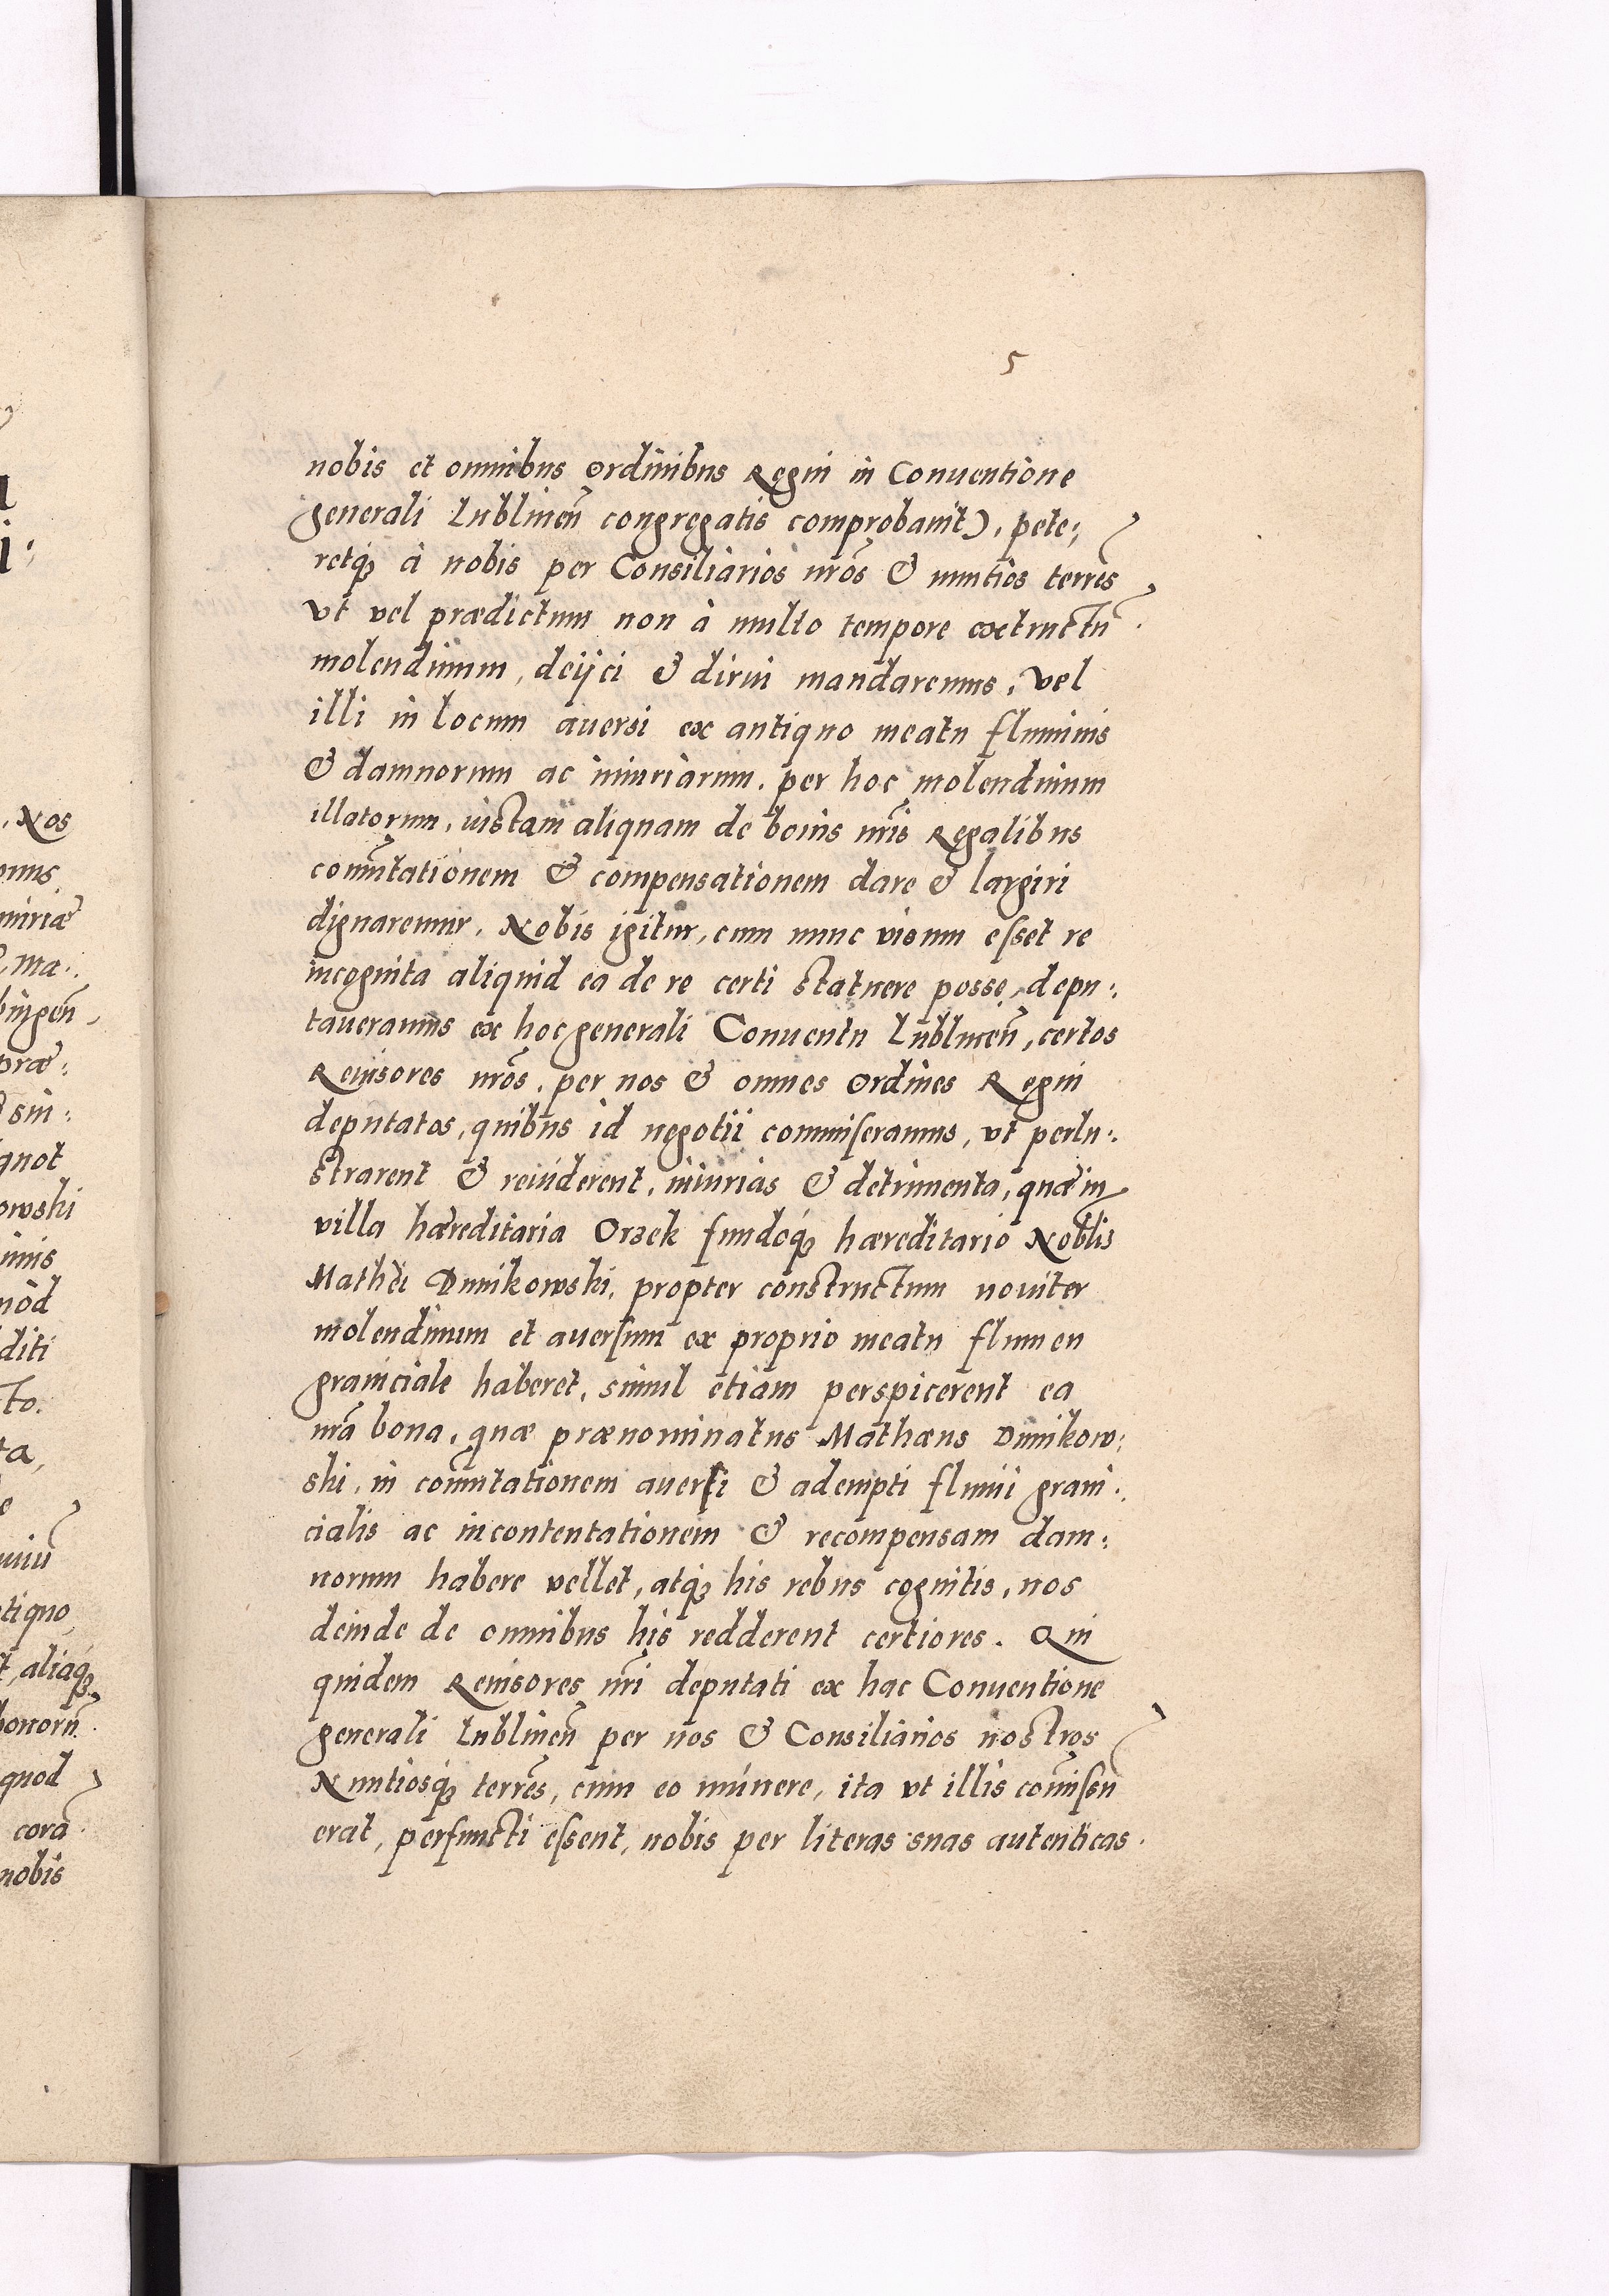 5
nobis et omnibus Ordinibus Regni in Conuentione
generali Lublineñ congregatis comprobauit), pete:
retq́ꝫ à nobis per Consiliarios nr̃os & nuntios terres̃
vt vel prædictum non à multo tempore exctructũ
molendinum, deijci & dirui mandaremus, vel
illi in locum auersi ex antiquo meatu fluminis
& damnorum ac iniuriarum, per hoc molendinum
illatorum, iustam aliquam de bonis nr̃is Regalibus
com̃utationem & compensationem dare & largiri
dignaremur. Nobis igitur, cum nunc visum esset re
incognita aliquid ea de re certi statuere posse, depu:
taueramus ex hoc generali Conuentu Lublineñ, certos
Reuisores nr̃os, per nos & omnes Ordines Regni
deputatos, quibus id negotii commiseramus, vt perlu:
strarent & reuiderent, iniurias & detrimenta, quæ in
villa hæreditaria Orzek fundoq́ꝫ hæreditario Noblis
Mathei Dunikowski, propter constructum nouiter
molendinum et auersum ex proprio meatu flumen
graniciale haberet, simul etiam perspicerent ea
nr̃a bona, quæ prænominatus Mathæus Dunikow:
ski, in com̃utationem auersi & adempti fluuii grani:
cialis ac incontentationem & recompensam dam:
norum habere vellet, atq́ꝫ his rebus cognitis, nos
deinde de omnibus his redderent certiores. Qui
quidem Reuisores nr̃i deputati ex hac Conuentione
generali Lublineñ per nos & Consiliarios nostros
Nuntiosq́ꝫ terres̃, cum eo múnere, ita vt illis com̃issũ
erat, perfuncti essent, nobis per literas suas autenticas